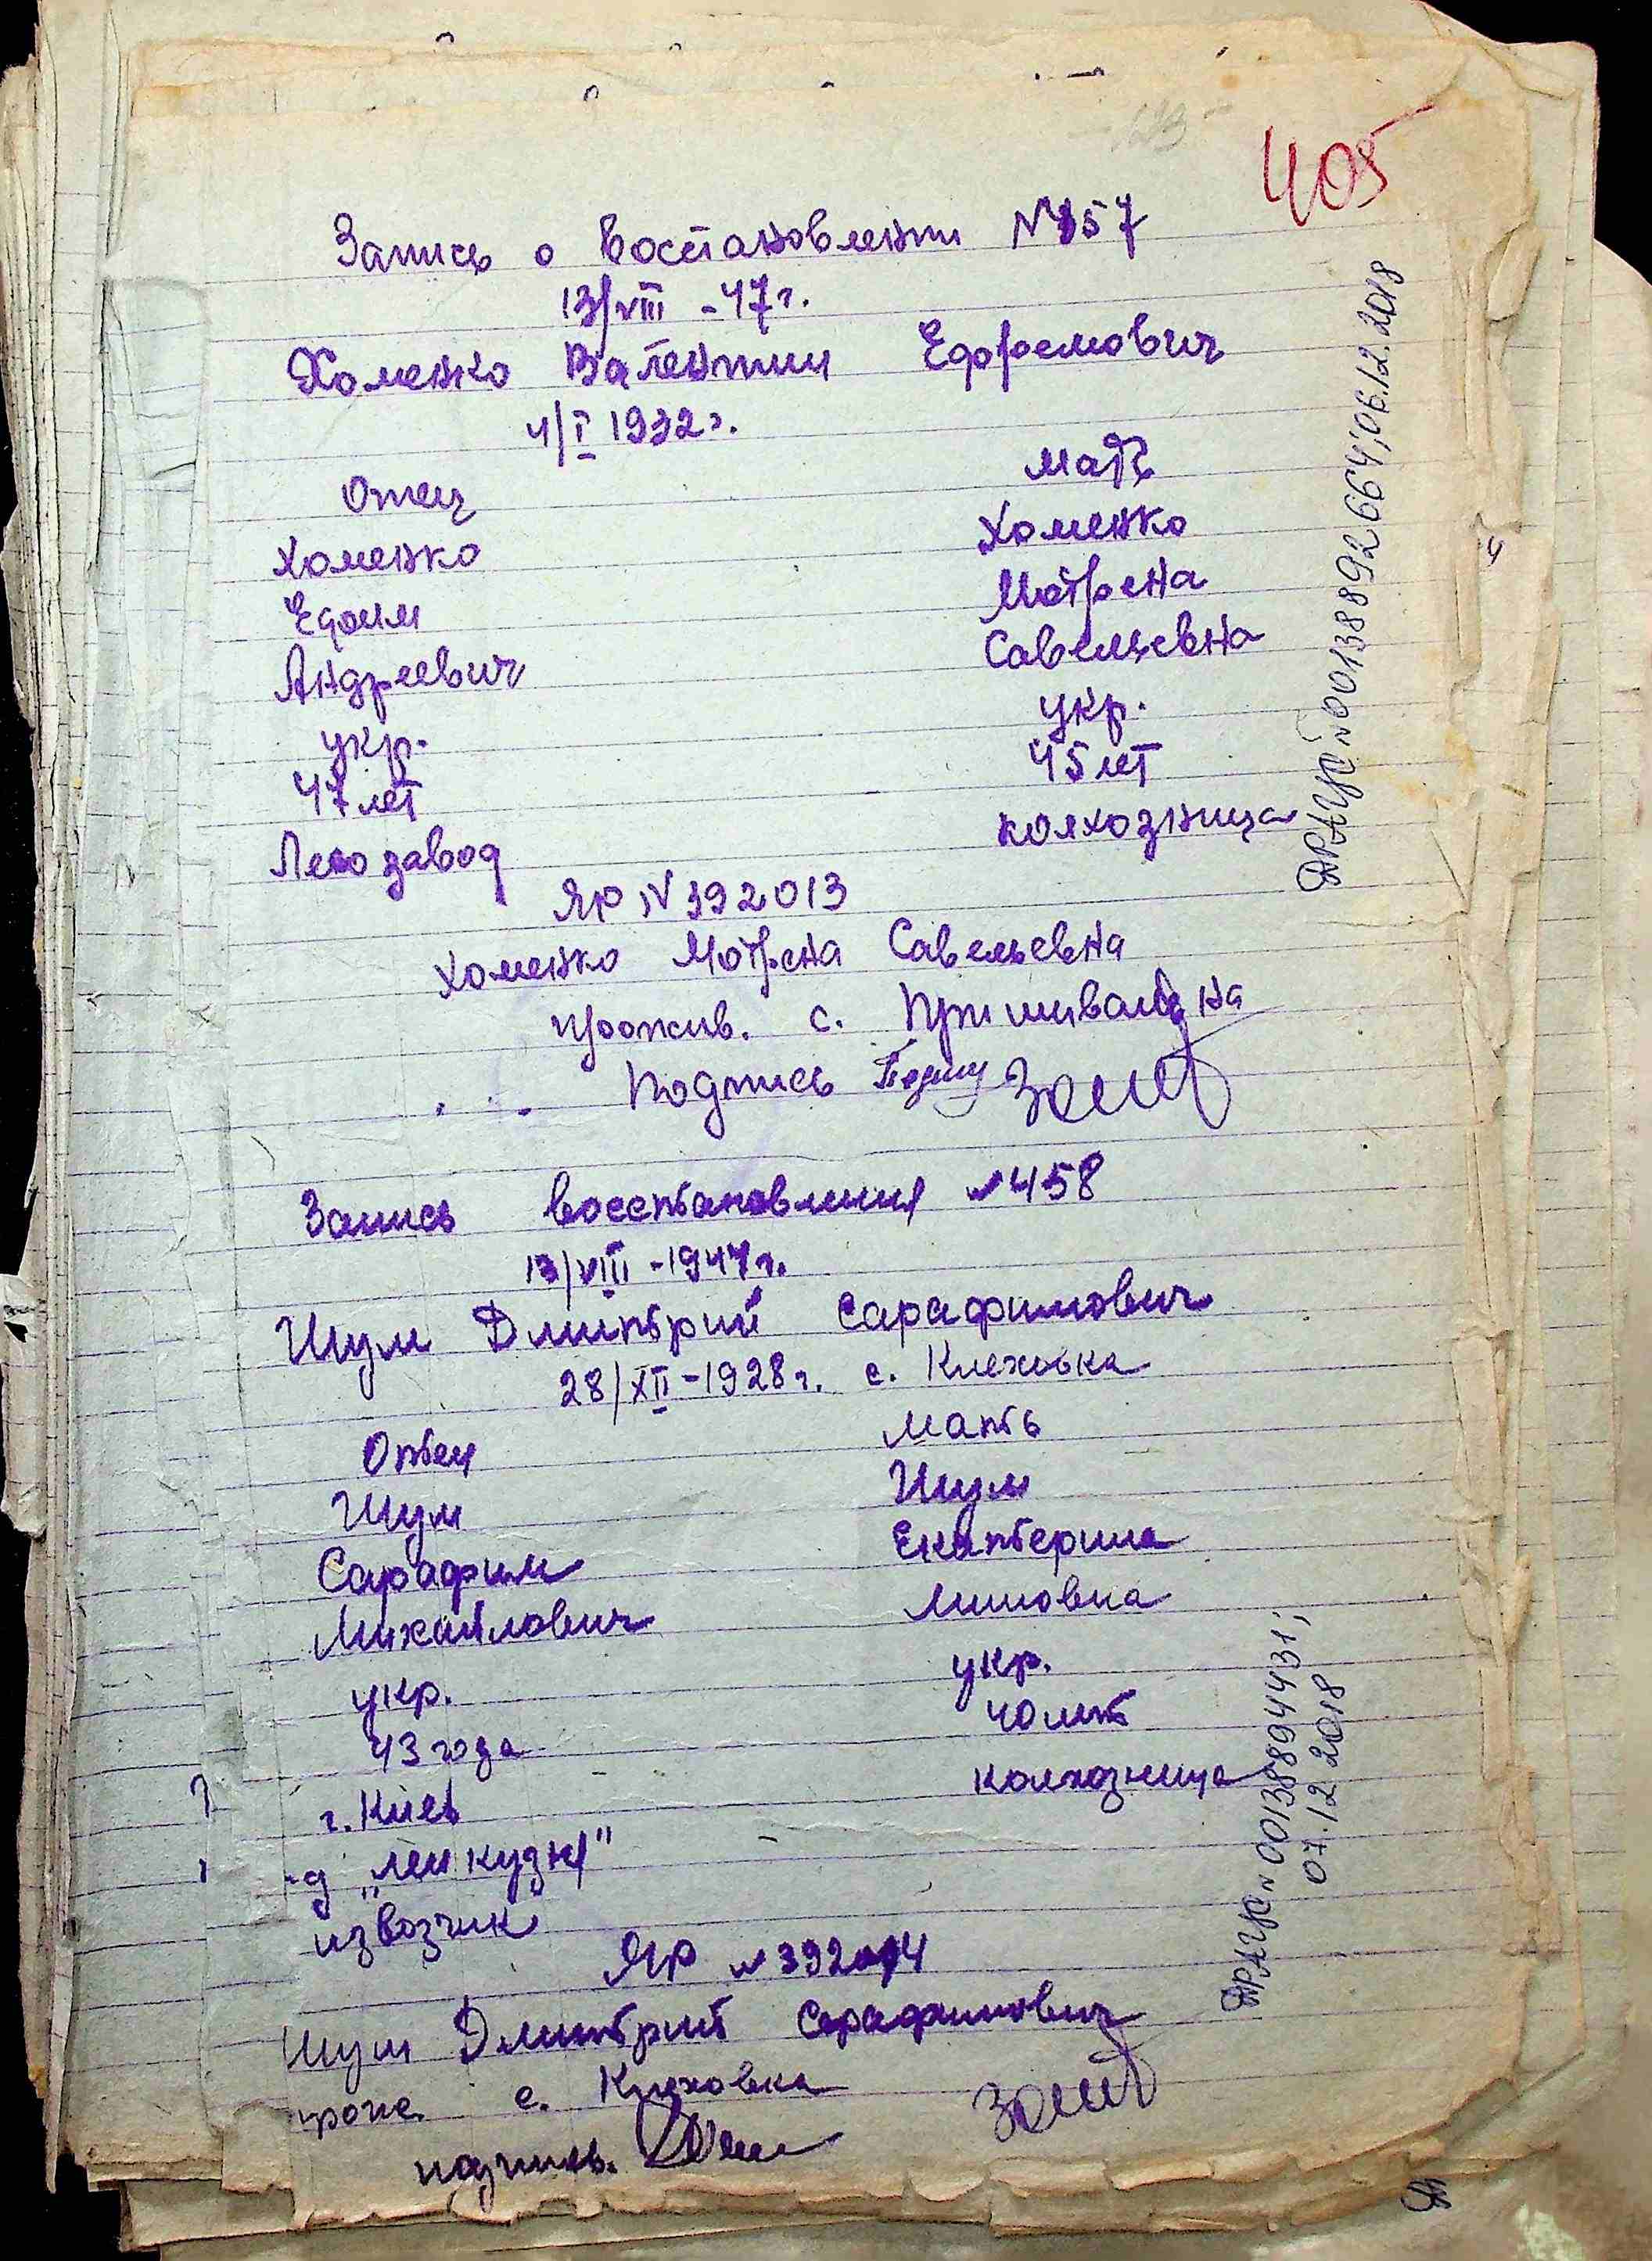 405
Запись о востановлении №457
13/VIII -47г.
Хоменко Валентин Ефремович
4/I 1932г.
Отец Мать
Хоменко Хоменко
Ефим Мотрена
Андреевич Савельевна
укр. укр.
47 лет 45 лет
Лесозавод колхозница
ЯР №392013
Хоменко Мотрена Савельевна
прожив. с. Пришивальна
Подпись
Запись восстановления №458
13/VIII -1947г.
Шум Дмитрий Сарафимович
28/XII -1928г. с. Клеховка
Отец Мать
Шум Шум
Сарафим Екатерина
Михайлович Миновна
укр. укр.
43 года 40 лет
г. Киев колхозница
-д „Ленкузня"
извозчик
ЯР №392014
Шум Дмитрий Серафимович
прож. с. Клеховка
подпись.
ДРАЦС №00138892664; 06.12.2018
ДРАЦС №00138894431;
07.12 2018